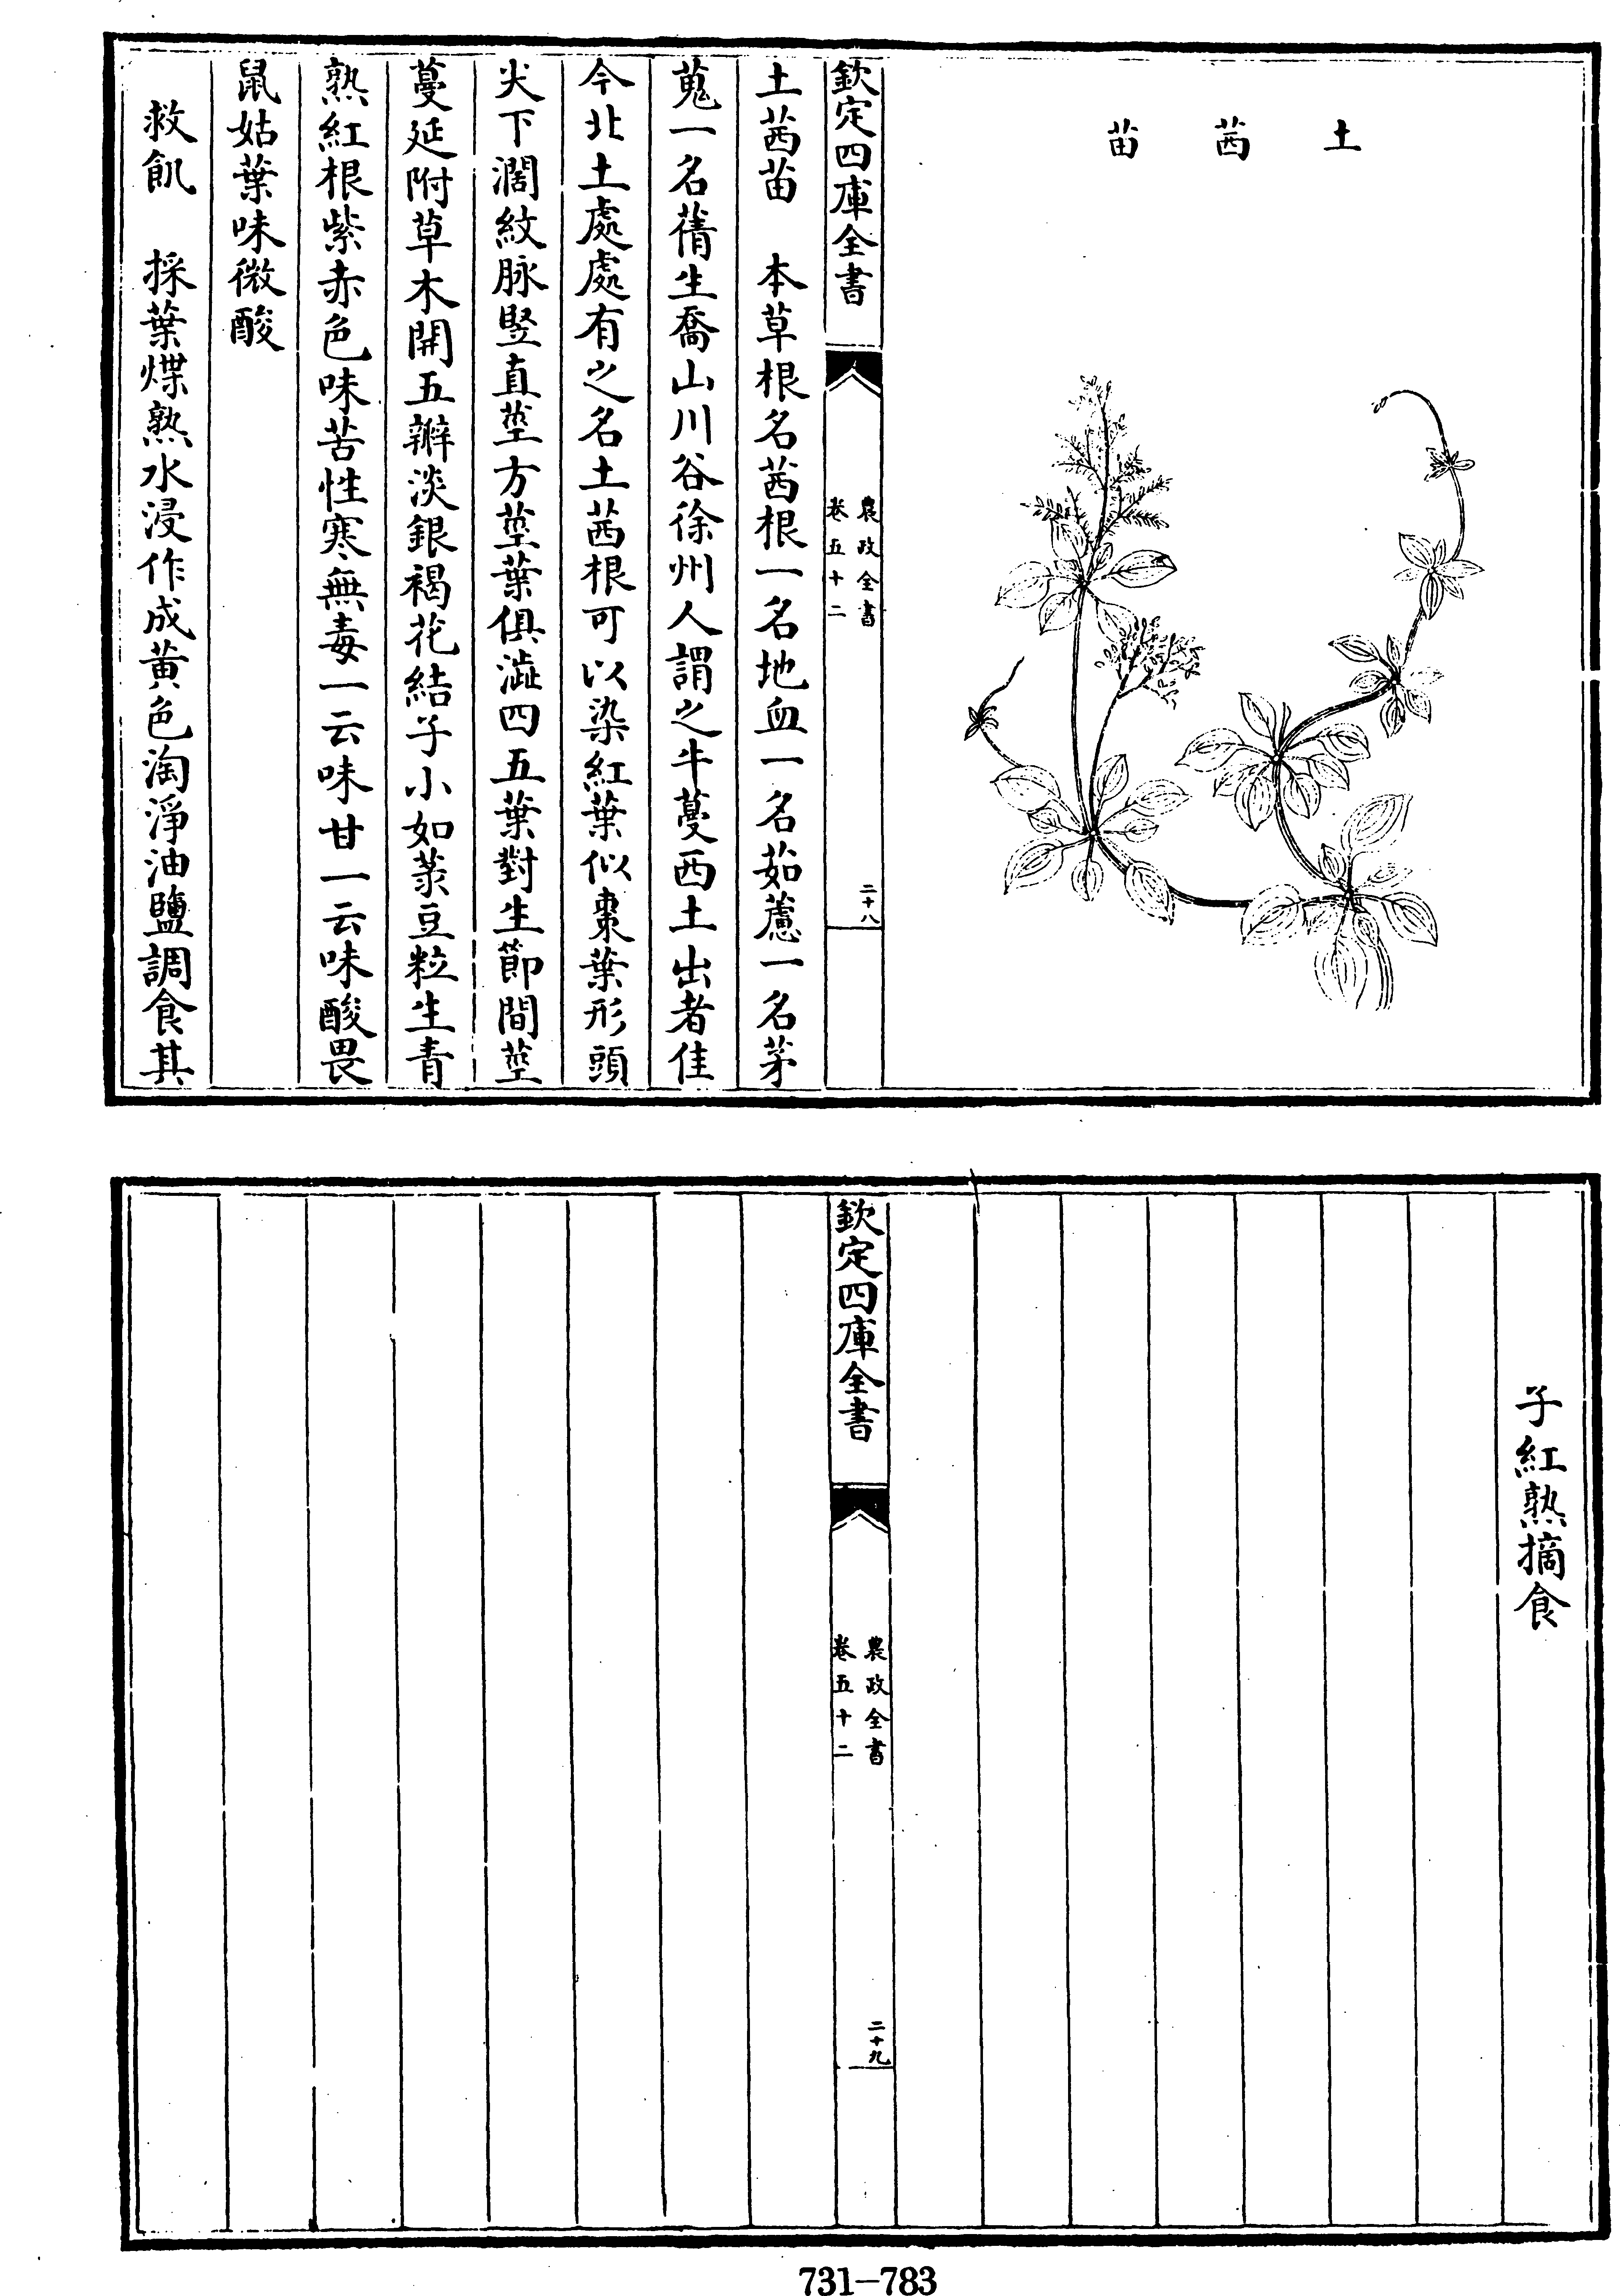 土茜苗
欽定四庫全書
農政全書
卷五十二
二十八
土茜苗　本草根名茜根一名地血一名茹藘一名茅
蒐一名蒨生喬山川谷徐州人謂之牛蔓西土出者佳
今北土處處有之名土茜根可以染紅葉似棗葉形頭
尖下濶紋脉竪直莖方莖葉俱澁四五葉對生節間莖
蔓延附草木開五瓣淡銀褐花結子小如菉豆粒生青
熟紅根紫赤色味苦性寒無毒一云味甘一云味酸畏
鼠姑葉味微酸
救飢　採葉煠熟水浸作成黄色淘淨油鹽調食其
子紅熟摘食
欽定四庫全書
農政全書
卷五十二
二十九
731-783